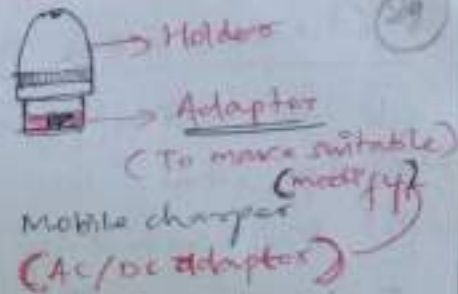 Holder
Adaptor
(To make suitable)
(modify)
Mobile charger
(AC/DC adaptor)